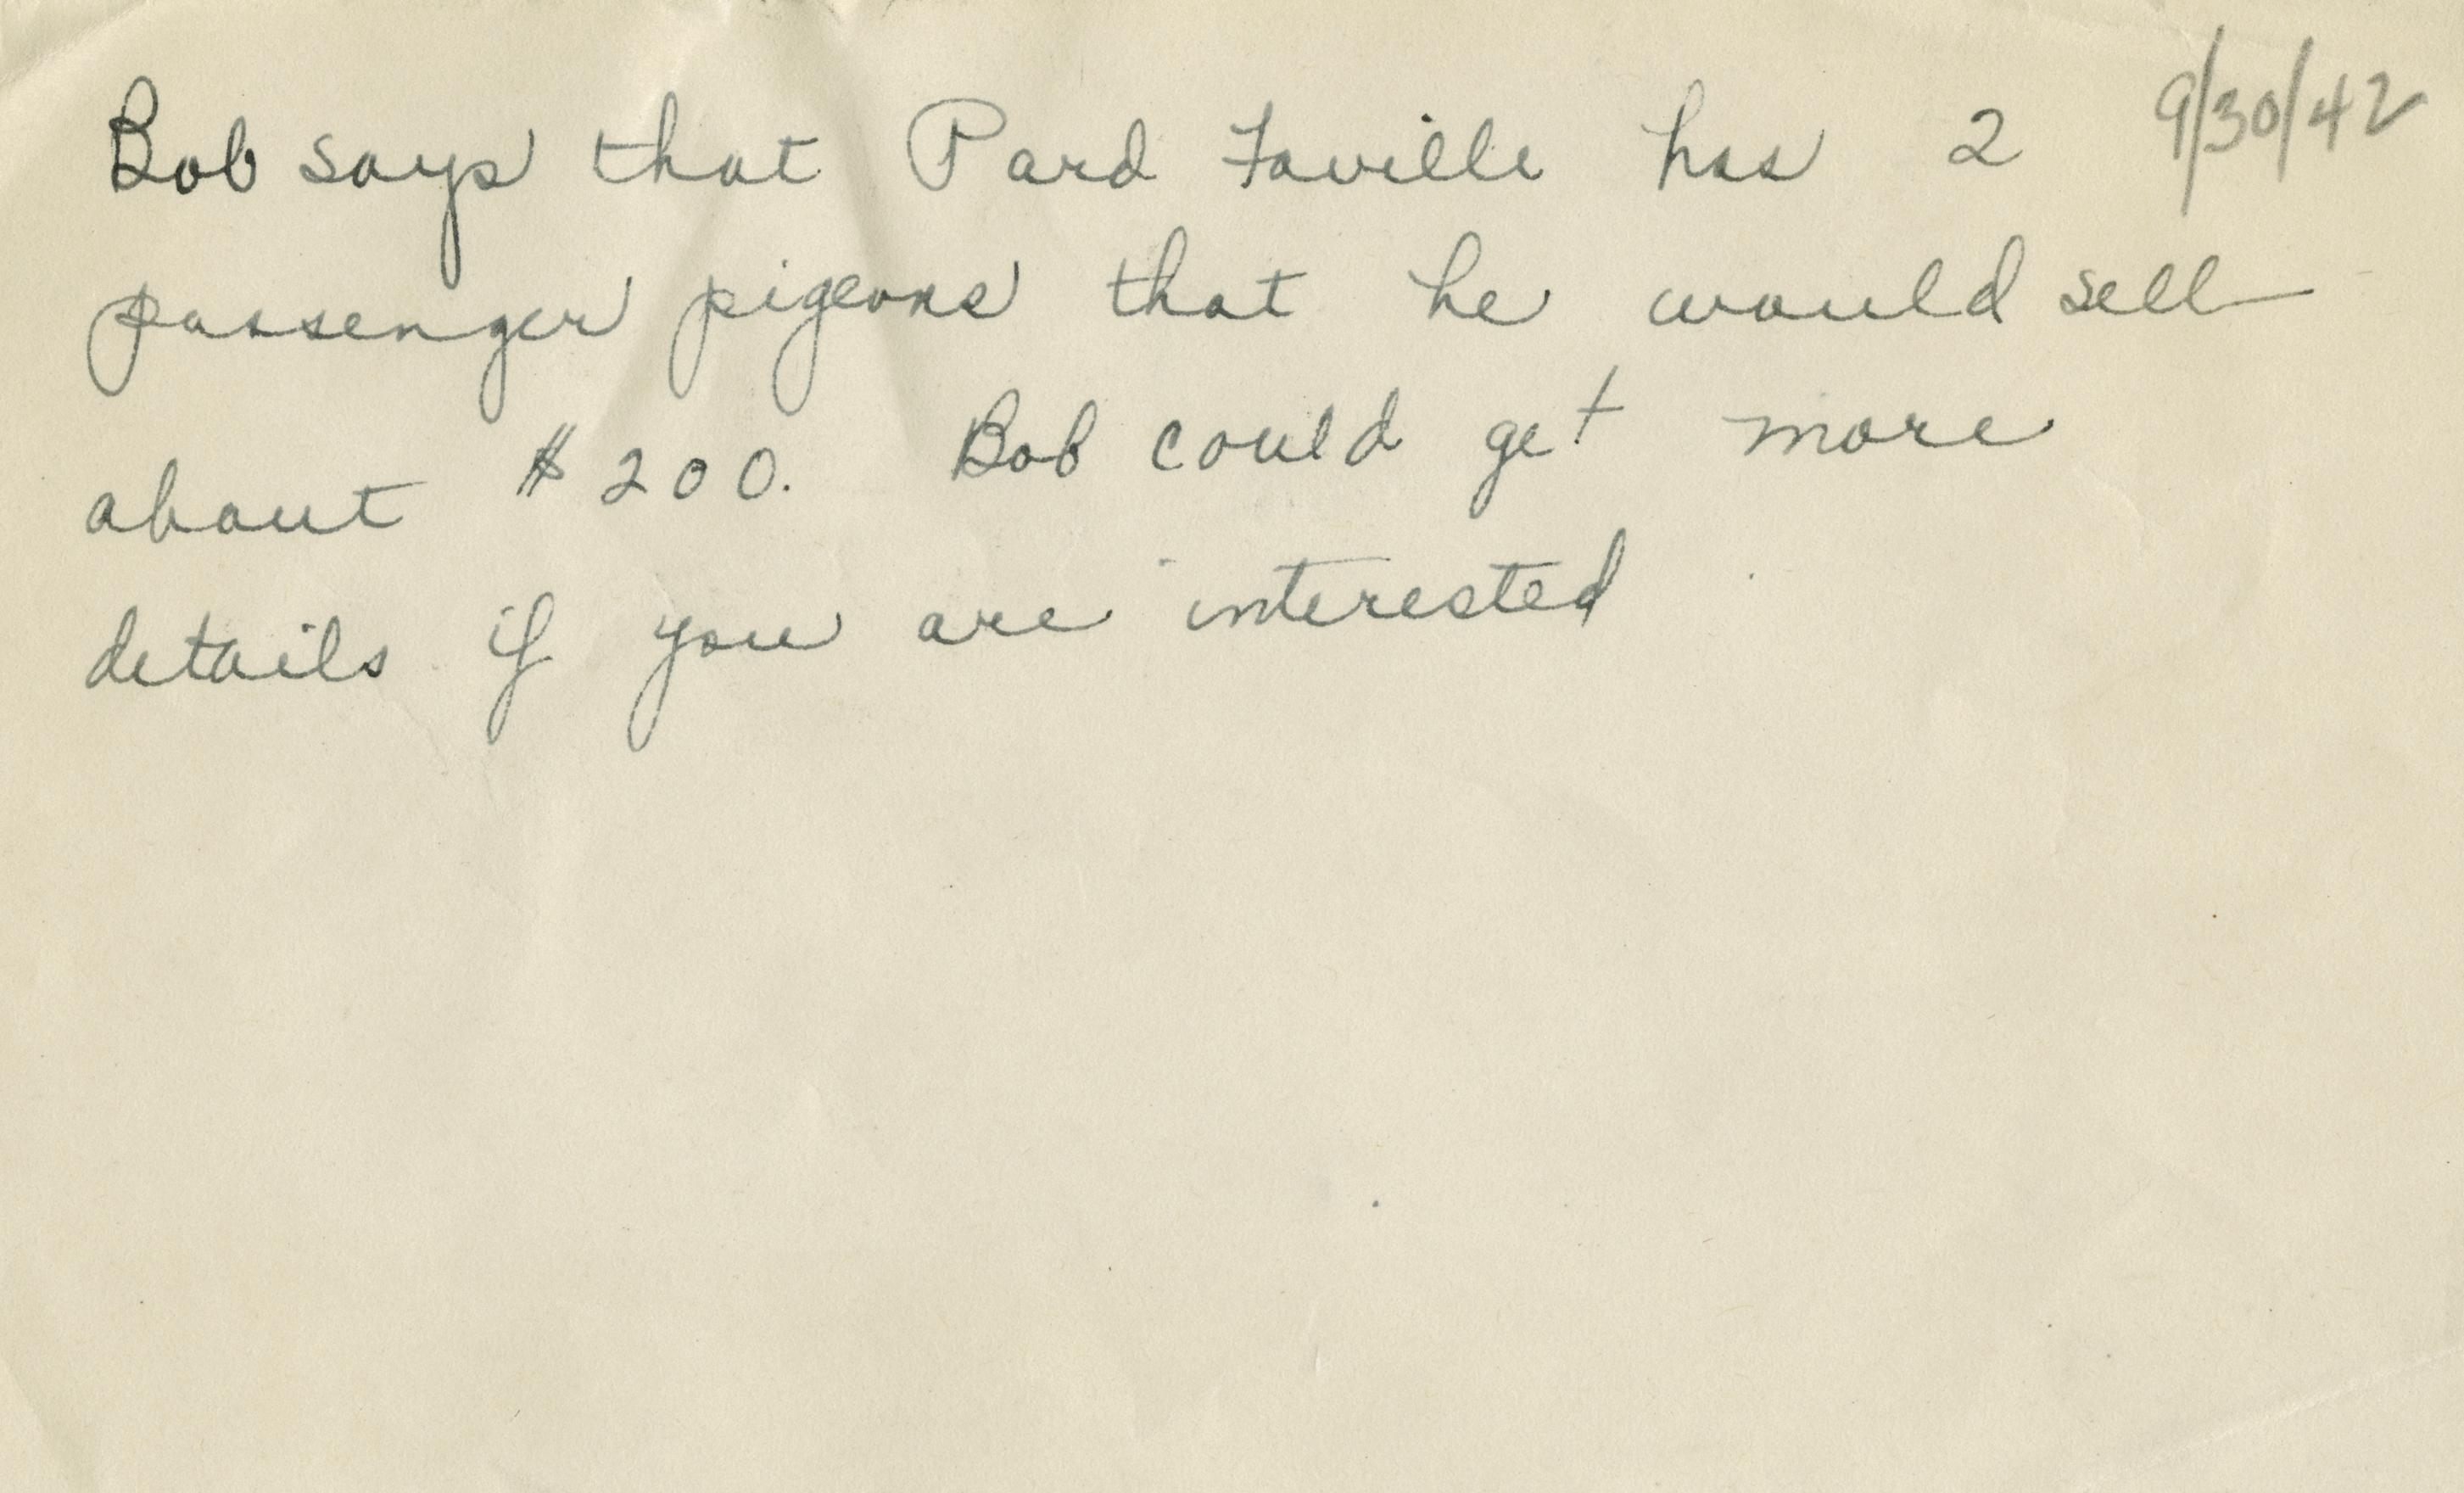 Bob says that Pard Faville has 2 9/30/42
passenger pigeons that he would sell
about $200. Bob could get more
details if you are interested